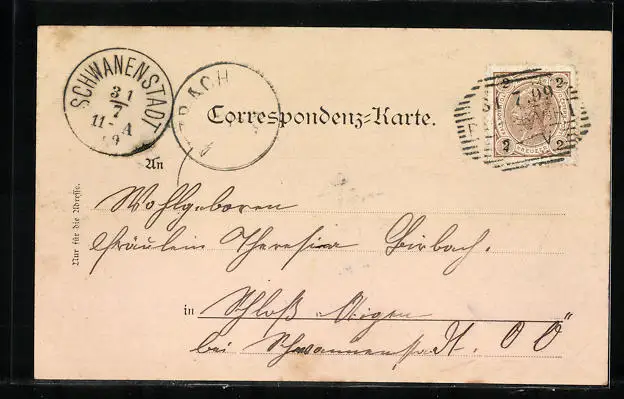 SCHWANENSTADT
31
7
11-A
9
ZBACH
Correspondenz-Karte.
2 2
7.99
KREUZER
2 2
An
Nur für die Adresse.
Wohlgeboren
Fräulein Theresia Birbach.
in Schloß Aigen
bei Schwannenstadt. O Ö